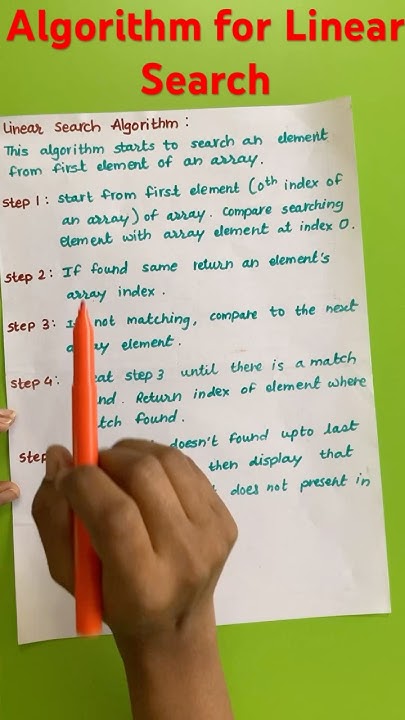 Algorithm for Linear
Search
Linear Search Algorithm :
This algorithm starts to search an element
from first element of an array.
Step 1 : start from first element (0th index of
an array) of array. Compare searching
element with array element at index 0.
Step 2 : If found same return an element's
array index.
Step 3 : not matching, compare to the next
element.
Step 4 : step 3 until there is a match
. Return index of element where
found.
doesn't found upto last
then display that
does not present in